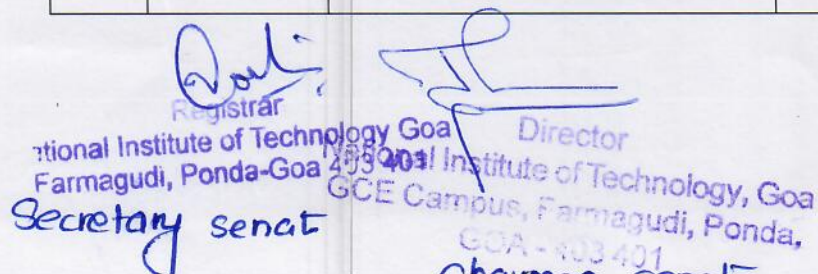 Registrar
tional Institute of Technology Goa
Farmagudi, Ponda-Goa 403 401
Secretary senat
Director
National Institute of Technology, Goa
GCE Campus, Farmagudi, Ponda,
GOA - 403 401